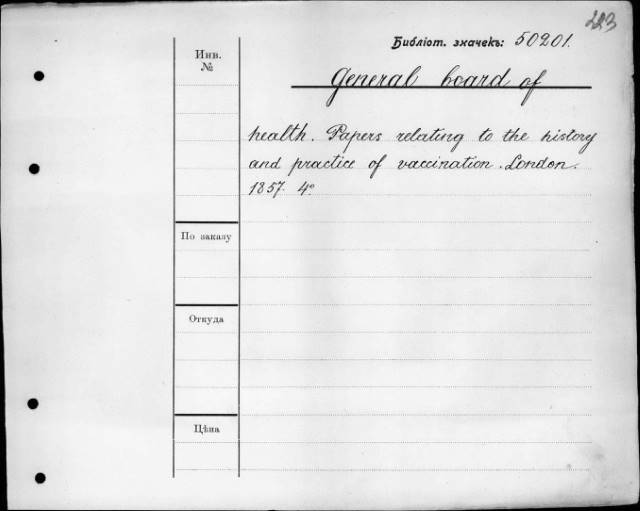 223
Библіот. значекъ: 50201.
Инв.
№
General board of
health. Papers relating to the history
and practice of vaccination. London.
1857. 4°
По заказу
Откуда
Цѣна